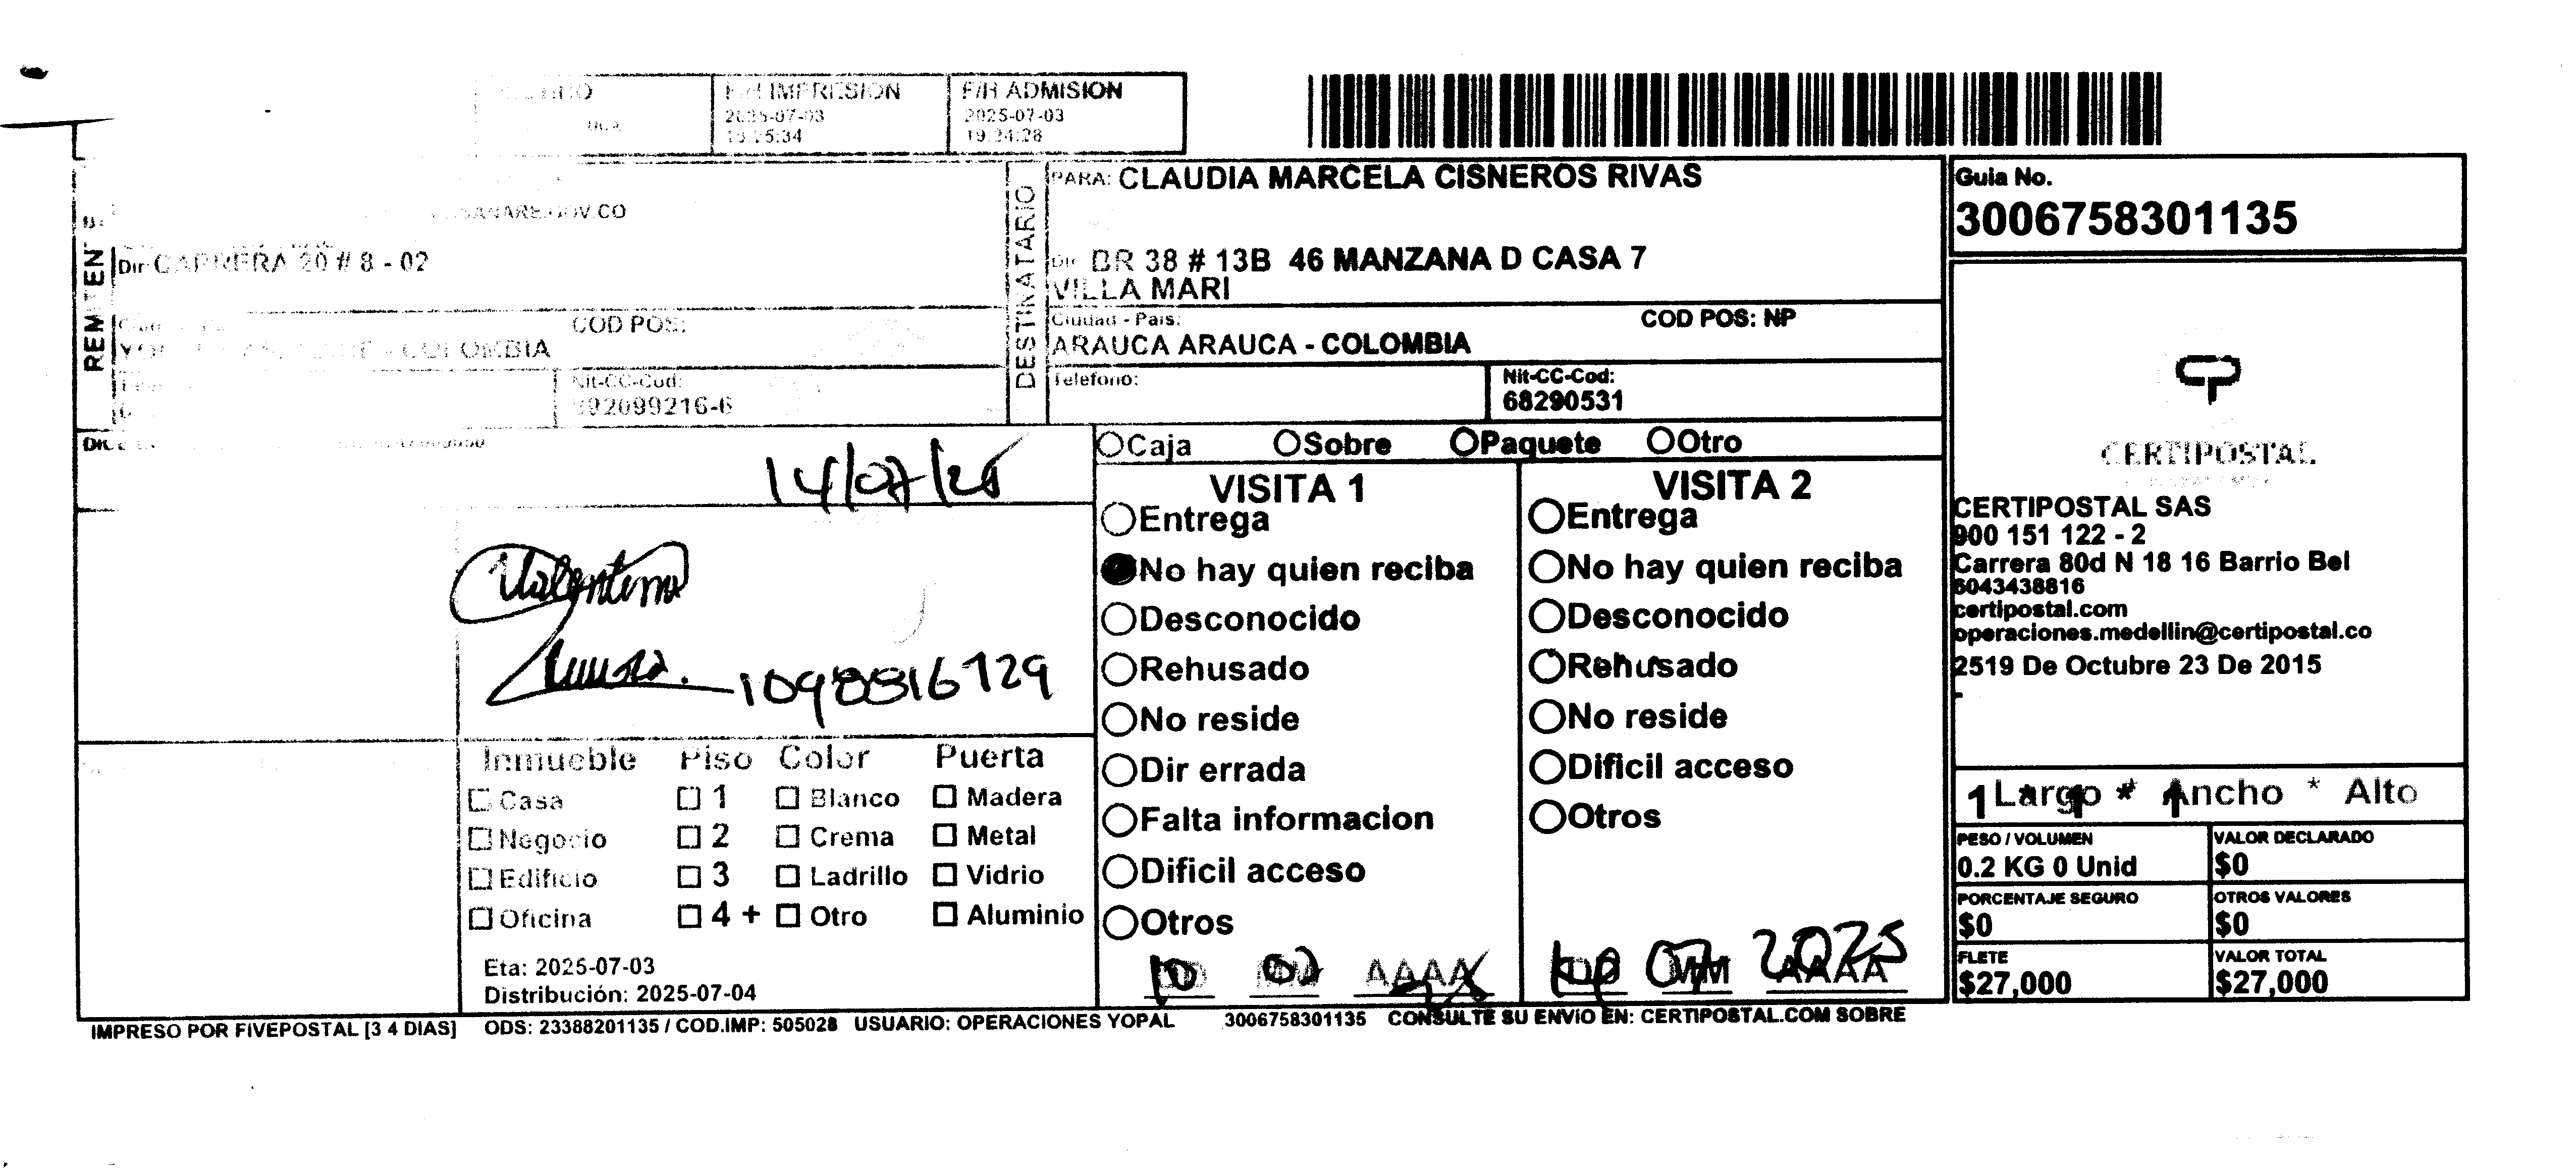 F/H IMPRESION
2025-07-03
19:25:34
F/H ADMISION
2025-07-03
19:24:28
REMITENTE
Dir CARRERA 20 # 8 - 02
COD POS:
COLOMBIA
Nit-CC-Cod:
892099216-6
DESTINATARIO
PARA: CLAUDIA MARCELA CISNEROS RIVAS
Dir 38 # 13B 46 MANZANA D CASA 7
VILLA MARI
Ciudad - Pais:
COD POS: NP
ARAUCA ARAUCA - COLOMBIA
Telefono:
Nit-CC-Cod:
68290531
Guia No.
3006758301135
14/07/25
Valentina
1098816729
Caja Sobre Paquete Otro
VISITA 1
Entrega
No hay quien reciba
Desconocido
Rehusado
No reside
Dir errada
Falta informacion
Dificil acceso
Otros
10
VISITA 2
Entrega
No hay quien reciba
Desconocido
Rehusado
No reside
Dificil acceso
Otros
07 2025
Inmueble Piso Color Puerta
Casa 1 Blanco Madera
Negocio 2 Crema Metal
Edificio 3 Ladrillo Vidrio
Oficina 4 + Otro Aluminio
Eta: 2025-07-03
Distribución: 2025-07-04
CERTIPOSTAL
CERTIPOSTAL SAS
900 151 122 - 2
Carrera 80d N 18 16 Barrio Bel
6043438816
certipostal.com
operaciones.medellin@certipostal.co
2519 De Octubre 23 De 2015
-
1 Largo * 1 Ancho * Alto
PESO / VOLUMEN
0.2 KG 0 Unid
VALOR DECLARADO
$0
PORCENTAJE SEGURO
$0
OTROS VALORES
$0
FLETE
$27,000
VALOR TOTAL
$27,000
IMPRESO POR FIVEPOSTAL [3 4 DIAS] ODS: 23388201135 / COD.IMP: 505028 USUARIO: OPERACIONES YOPAL 3006758301135 CONSULTE SU ENVIO EN: CERTIPOSTAL.COM SOBRE